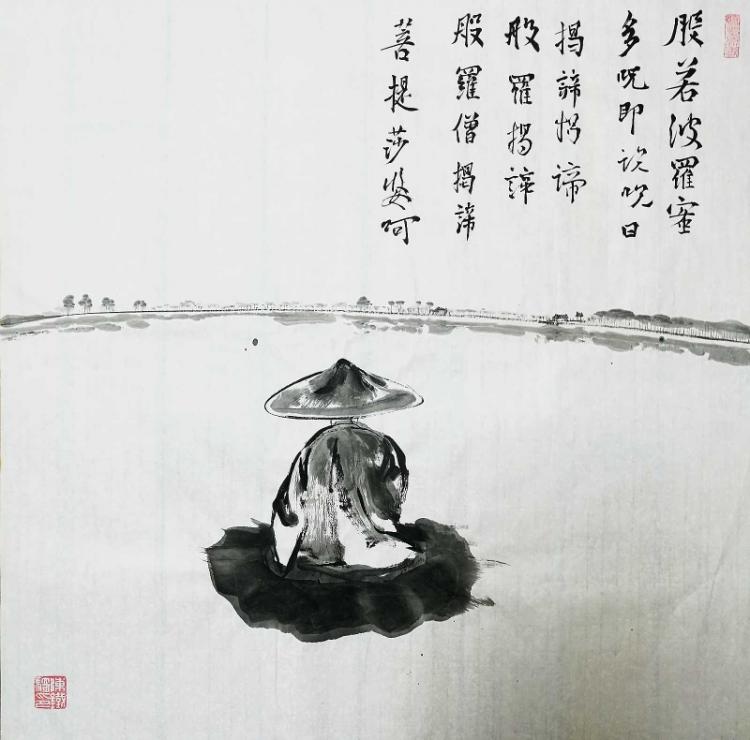 般若波羅蜜
多呪即説呪曰
揭諦揭諦
般羅揭諦
般羅僧揭諦
菩提莎婆呵